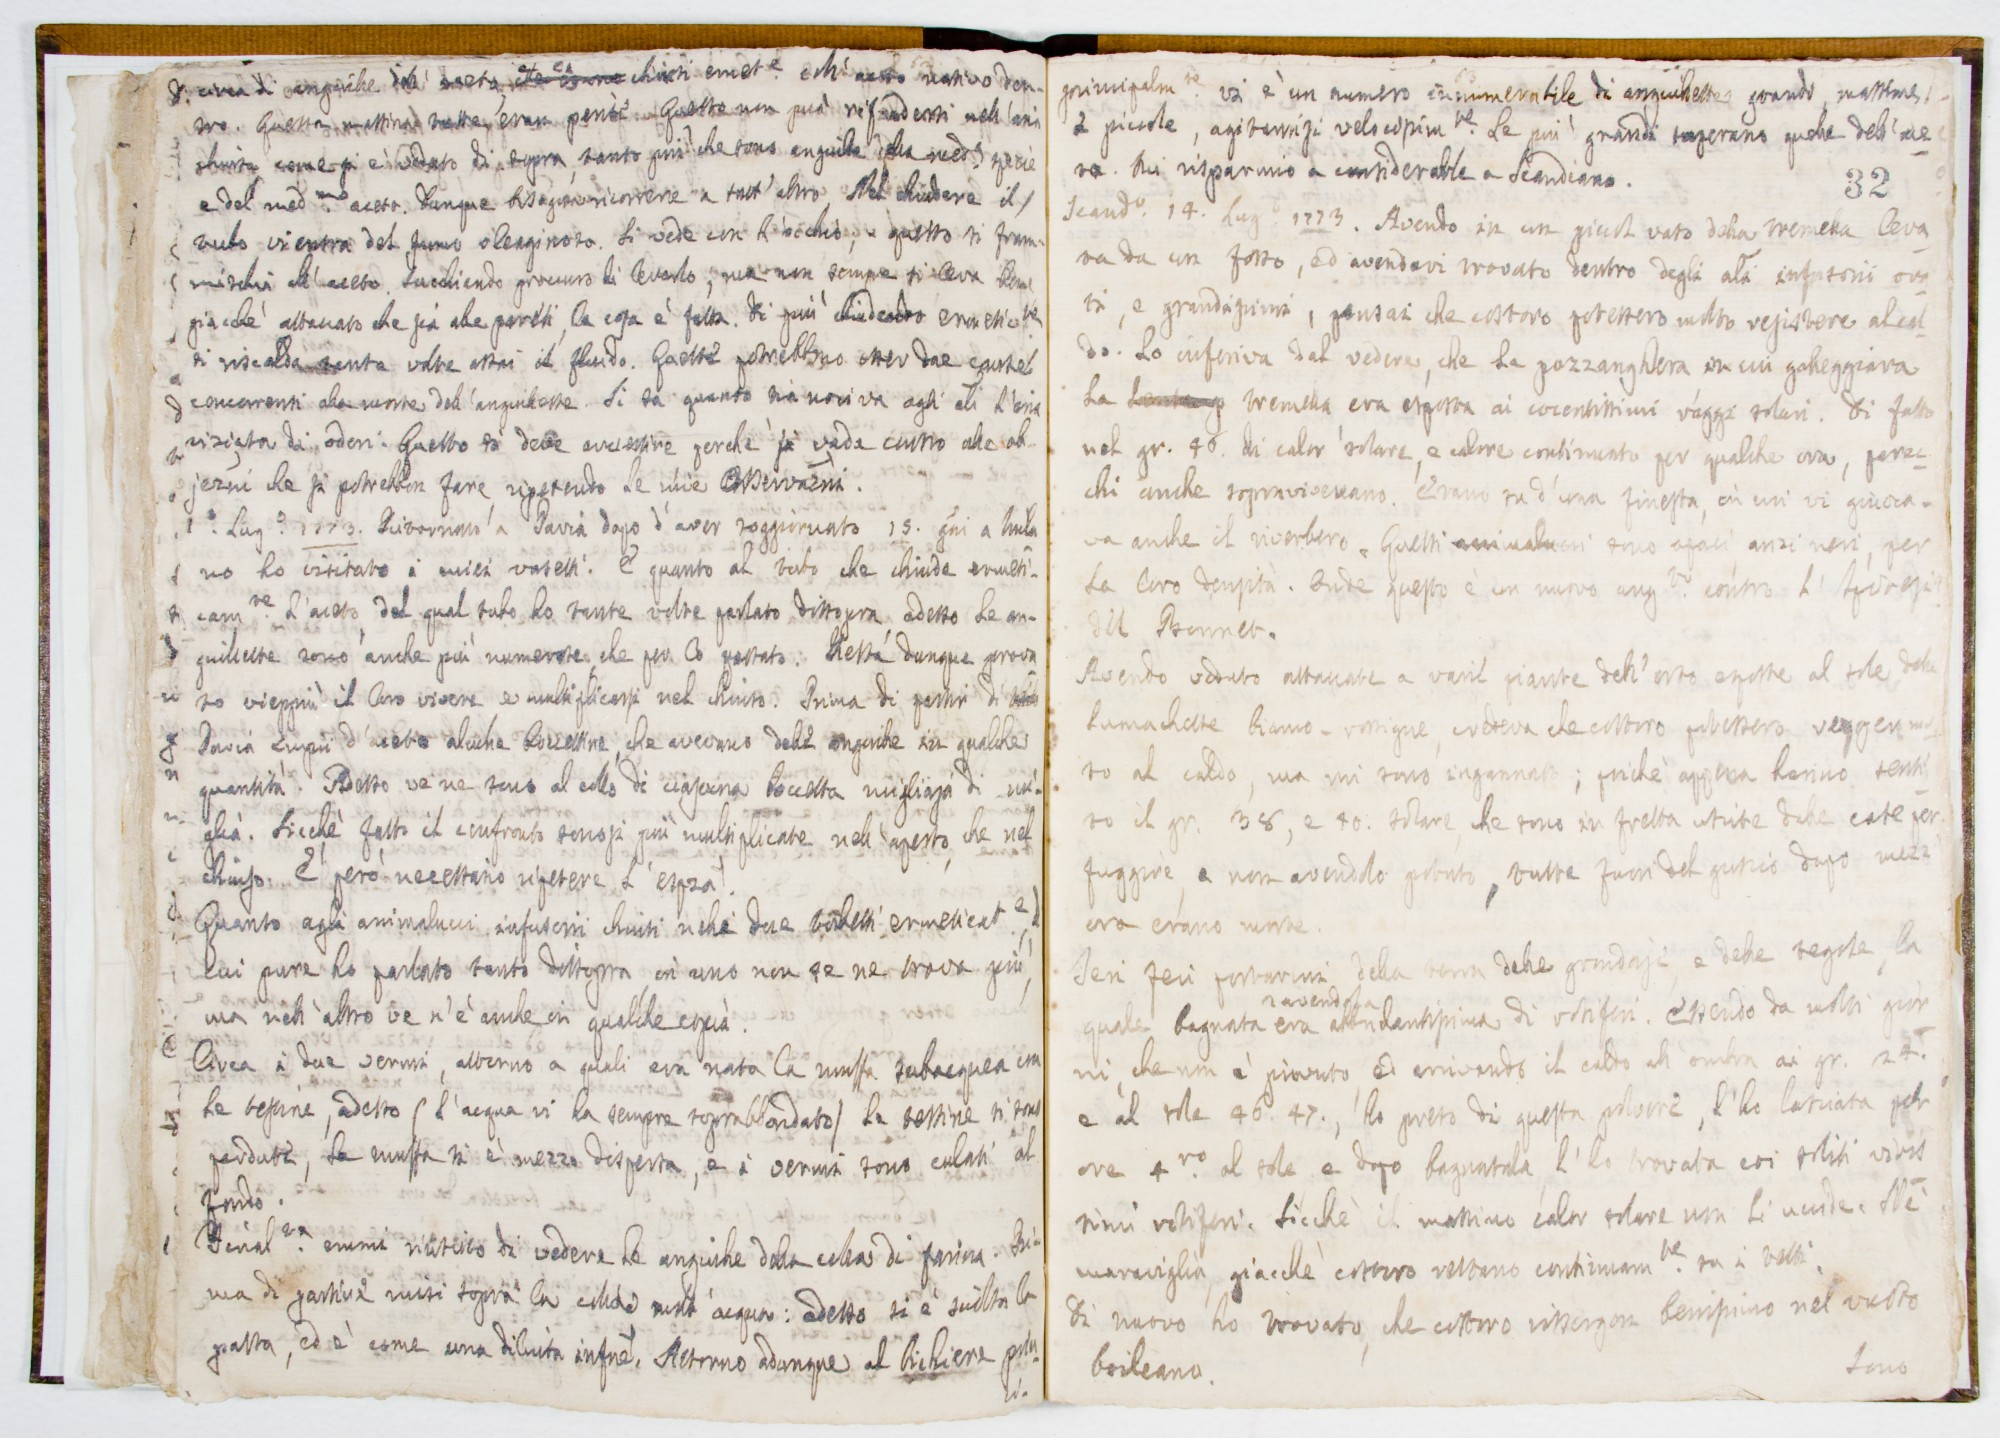 circa di anguille dell'aceto, chiusi ermet.e coll'aceto nativo den-
tro. Questa mattina tutte eran perite. Questo non può rifondersi nell'aria
chiusa come si è veduto di sopra, tanto più che sono anguille della med.a specie
e del med.mo aceto. Dunque bisogna ricorrere a tutt'altro. Nel chiudere il
tubo vi entra del fumo oleaginoso. Si vede con l'occhio, e questo si fram-
mischia all'aceto. Succhiando procuro di levarlo, ma non sempre si leva bene
giacché attaccato che sia alle pareti, la cosa è fatta. Di più chiudendo ermetic.te
si riscalda tante volte assai il fluido. Queste potrebbono esser due cause
concorrenti alla morte dell'anguillette. Si sa quanto sia nociva agli ali l'aria
viziata di odori. Questo si deve avvertire perché si vada contro alle ob-
jezni che si potrebbon fare, ripetendo le mie Osservazni.
1.o Lug.o 1773. Ritornato a Pavia dopo d'aver soggiornato 15. gni a Mila
no ho visitato i miei vaselli. E quanto al tubo che chiude ermeti-
cam.te l'aceto, del qual tubo ho tante volte parlato dissopra, adesso le an-
guillette sono anche più numerose che per lo passato. Resta dunque prova
to vieppiù il loro vivere e multiplicarsi nel chiuso. Prima di partir di
Pavia empii d'aceto alcune boccettine, che avevano delle anguille in qualche
quantità. Adesso ve ne sono al collo di ciascuna boccetta migliaja di mi-
gliaja. Sicchè fatto il confronto sonosi più multiplicate nell'aperto, che nel
chiuso. È però necessario ripetere l'espza.
Quanto agli animalucci infusorii chiusi nelli due tubetti ermeticat.e, di
cui pure ho parlato tanto dissopra, in uno non se ne trova più,
ma nell'altro ve n'è anche in qualche copia.
Circa i due vermi, attorno a quali era nata la muffa subacquea con
le testine, adesso (l'acqua vi ha sempre soprabbondato) le testine si sono
perdute, la muffa si è mezzo dispersa, e i vermi sono calati al
fondo.
Final.te emmi riuscito di vedere le anguille della colla di farina. Pri-
ma di partire misi sopra la colla molt'acqua: adesso si è sciolta la
pasta, ed è come una diluita infne. Attorno adunque al bichiere prin-
ci-
principalm.te vi è un numero innumerabile di anguillette grandi, massime,
e piccole, agitantisi velocissim.te. Le più grandi superano quelle dell'ace
to. Mi risparmio a considerarle a Scandiano.
32
Scand.o 14. Lug.o 1773. Avendo in un piccol vaso della tremella leva
ta da un fosso, ed avendovi trovato dentro degli ali infusorii ova
ti, e grandissimi, pensai che costoro potessero molto resistere al cal
do. Lo inferiva dal vedere, che la pozzanghera in cui galleggiava
la tremella era esposta ai cocentissimi raggi solari. Di fatto
nel gr. 46. di calor solare, e calore continuato per qualche ora, parec
chi anche sopravivevano. Erano su d'una finesta, in cui vi giocca-
va anche il riverbero. Questi animalucci sono opaci anzi neri, per
la loro densità. Onde questo è un nuovo arg.to contro l'
del Bonnet.
Avendo veduto attaccate a varie piante dell'orto esposte al sole delle
lumachette, credeva che costoro potessero reggere mol
to al caldo, ma mi sono ingannato; poiché appena hanno senti
to il gr. 38, e 40. solare, che sono in fretta uscite dalle case per
fuggire, e non avendolo potuto, tutte fuori del guscio dopo mezz'
ora erano morte.
Ieri feci portarmi della terra delle grondaje, e delle tegole, la
quale bagnata avendola era abbondantissima di rotiferi. Essendo da molti gior
ni, che non è piovuto, ed arrivando il caldo all'ombra ai gr. 24.
e al sole 46. 47., ho preso di questa polvere, l'ho lasciata per
ore 4.ro al sole e dopo bagnatala l'ho trovata coi soliti vivis
simi rotiferi. Sicchè il massimo calor solare non li uccide. Nè
maraviglia, giacchè costoro restano continuam.te su i tetti.
Di nuovo ho trovato, che costoro risorgon benissimo nel vuoto
boileano.
Sono